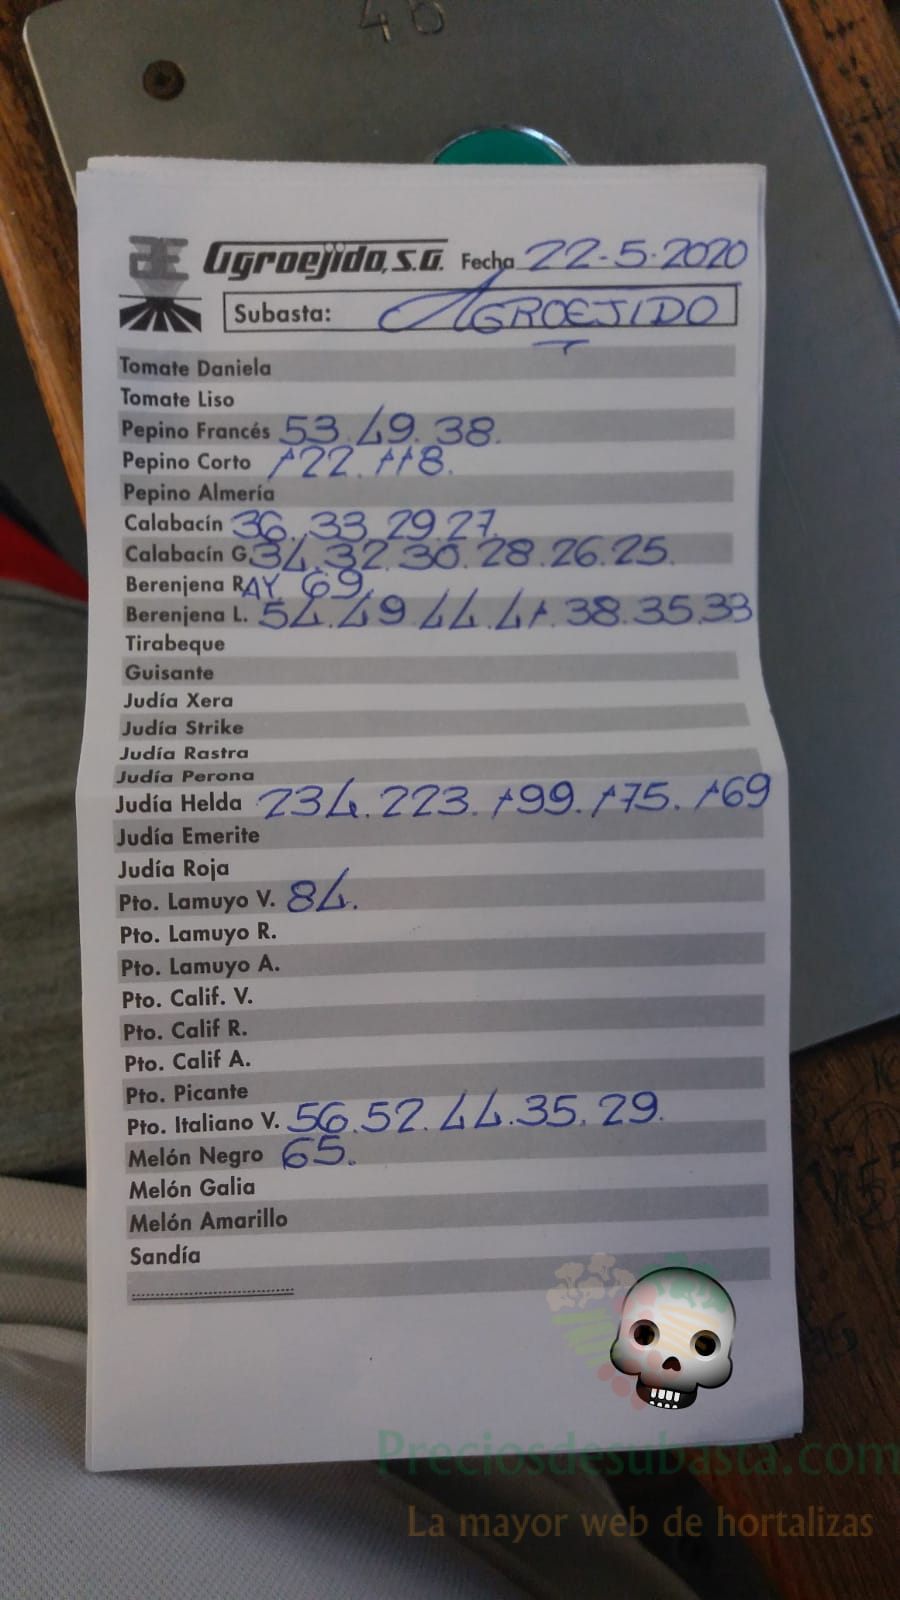 46
Agroejido, S.A. Fecha 22-5-2020
Subasta: AGROEJIDO
Tomate Daniela
Tomate Liso
Pepino Francés 53.49.38.
Pepino Corto 122.118.
Pepino Almería
Calabacín 36.33.29.27.
Calabacín G. 34.32.30.28.26.25.
Berenjena RAY. 69.
Berenjena L. 54.49.44.41.38.35.33
Tirabeque
Guisante
Judía Xera
Judía Strike
Judía Rastra
Judía Perona
Judía Helda 234.223.199.175.169
Judía Emerite
Judía Roja
Pto. Lamuyo V. 84.
Pto. Lamuyo R.
Pto. Lamuyo A.
Pto. Calif. V.
Pto. Calif R.
Pto. Calif A.
Pto. Picante
Pto. Italiano V. 56.52.44.35.29.
Melón Negro 65.
Melón Galia
Melón Amarillo
Sandía
Preciosdesubasta.com
La mayor web de hortalizas